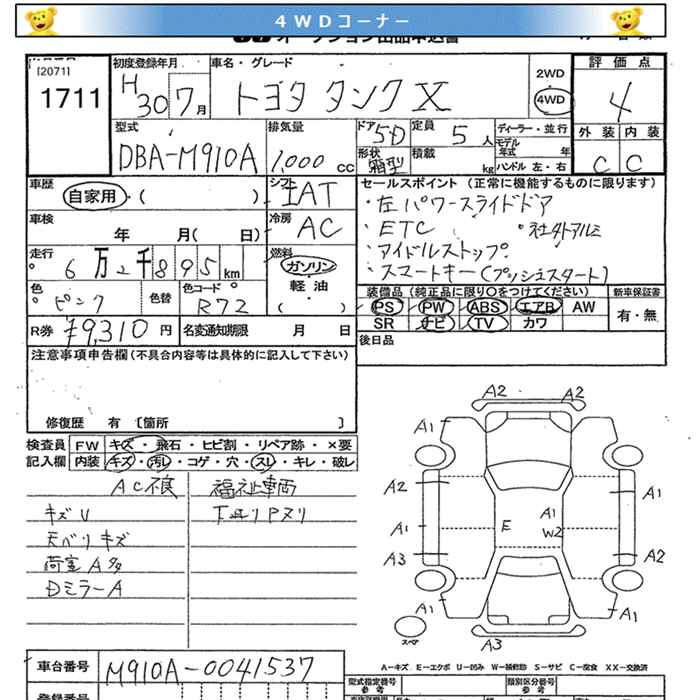 4WDコーナー
[2071]
1711
初度登録年月
H30 7月
車名・グレード
トヨタ タンク X
2WD
4WD
評価点
4
外装 内装
C C
型式
DBA-M910A
排気量
1,000 CC
ドア 5D
形状 箱型
定員 5人
積載 kg
ディーラー・並行
モデル年式 年
ハンドル 左・右
車歴
自家用・( )
シフト IAT
車検
年 月( 日)
冷房 AC
走行
6万2千895km
燃料
ガソリン・
軽油・
( )
色
ピンク
色替
色コード
R72
R券 ¥9,310円
名変通知期限 月 日
セールスポイント (正常に機能するものに限ります)
・左パワースライドドア
・ETC ・社外アルミ
・アイドルストップ
・スマートキー(プッシュスタート)
装備品 (純正品に限り○をつけてください)
新車保証書
PS PW ABS エアB AW
SR ナビ TV カワ
有・無
後日品
注意事項申告欄(不具合内容等は具体的に記入して下さい)
修復歴 有 [箇所 ]
検査員記入欄
FW キズ・飛石・ヒビ割・リペア跡・×要
内装 キズ・汚レ・コゲ・穴・スレ・キレ・破レ
AC不良 福祉車両
キズU
天ベリキズ
荷室A多
DミラーA
A2 A2
A1
A2 A1
A1 E A1 W2
A3 A2
A1 A1
スペア
A3
A-キズ E-エクボ U-凹み W-補修跡 S-サビ C-腐食 XX-交換済
車台番号 M910A-0041537
登録番号
型式指定番号
参考
類別区分番号
参考